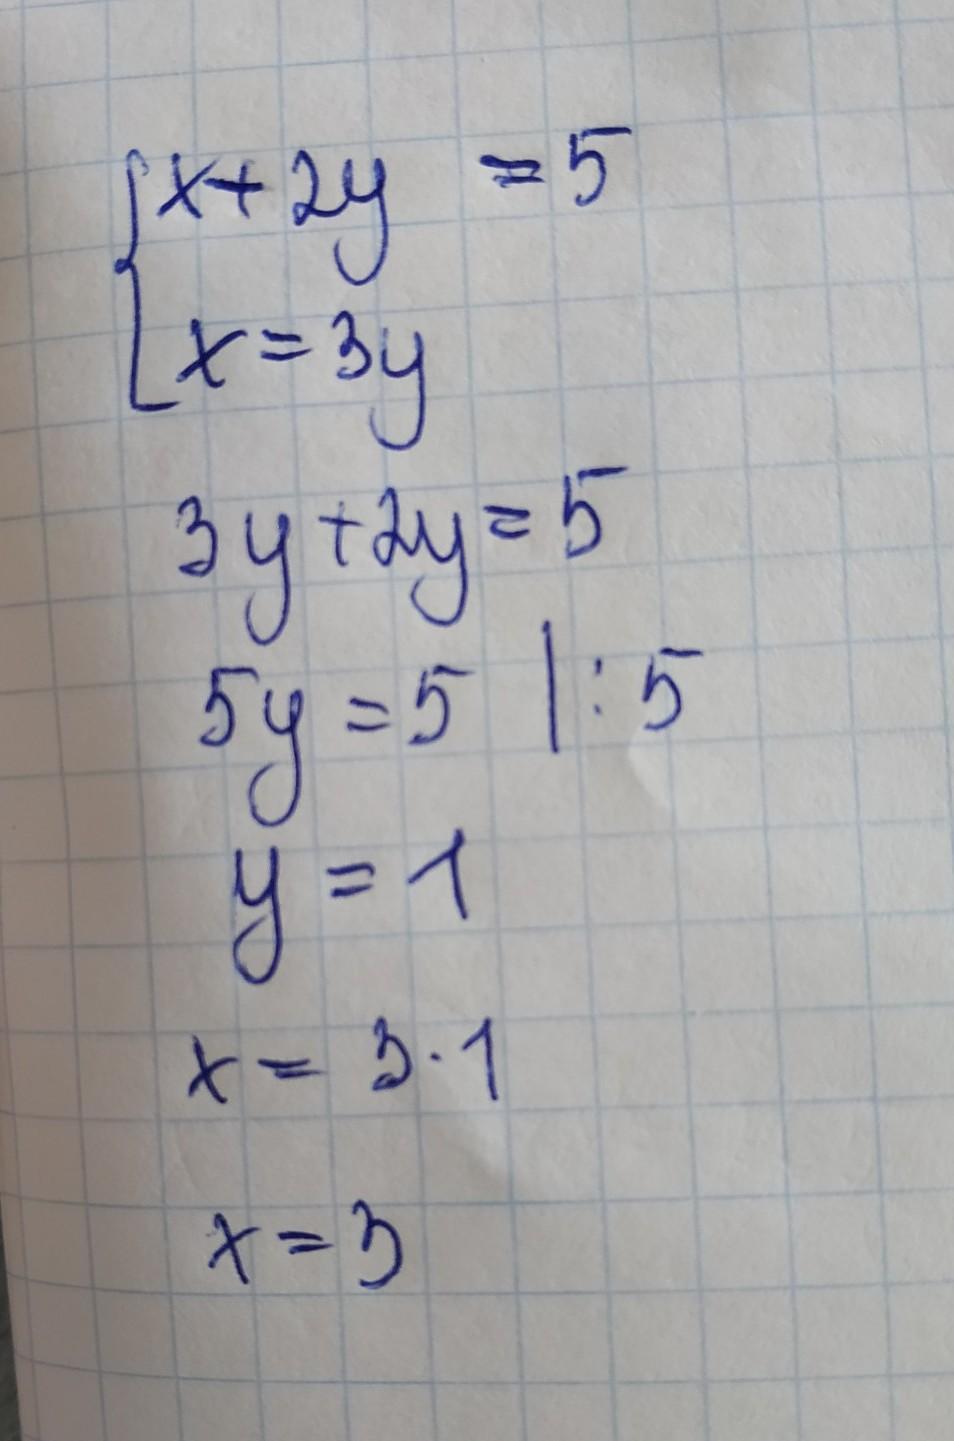 x+2y = 5
x = 3y
3y+2y = 5
5y = 5 |:5
y = 1
x = 3·1
x = 3